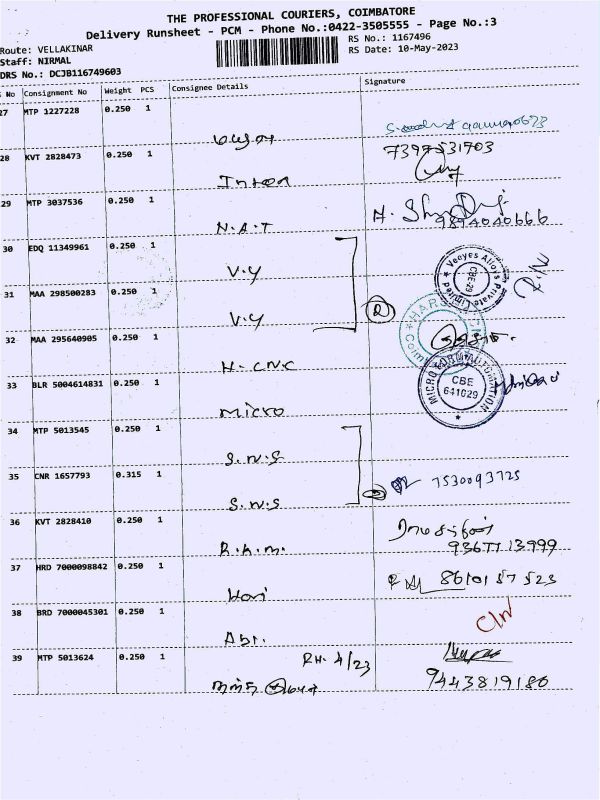 THE PROFESSIONAL COURIERS, COIMBATORE
Delivery Runsheet - PCM - Phone No.:0422-3505555 - Page No.:3
Route: VELLAKINAR
RS No.: 1167496
Staff: NIRMAL
RS Date: 10-May-2023
DRS No.: DCJB116749603
S No Consignment No Weight PCS Consignee Details Signature
27 MTP 1227228 0.250 1
28 KVT 2828473 0.250 1
7397531703
29 MTP 3037536 0.250 1
N.A.T
9894040666
30 EDQ 11349961 0.250 1
V.Y
Veeyes Alloys Private Limited
CBE-29
31 MAA 298500283 0.250 1
V.Y
2
32 MAA 295640905 0.250 1
H.CNC
33 BLR 5004614831 0.250 1
Micro
CBE
641029
34 MTP 5013545 0.250 1
S.N.S
35 CNR 1657793 0.315 1
S.N.S
7530093725
36 KVT 2828410 0.250 1
R.K.M.
93677 13999
37 HRD 7000098842 0.250 1
Hari
8610157523
38 BRD 7000045301 0.250 1
39 MTP 5013624 0.250 1
RH. 4/23
9443819180